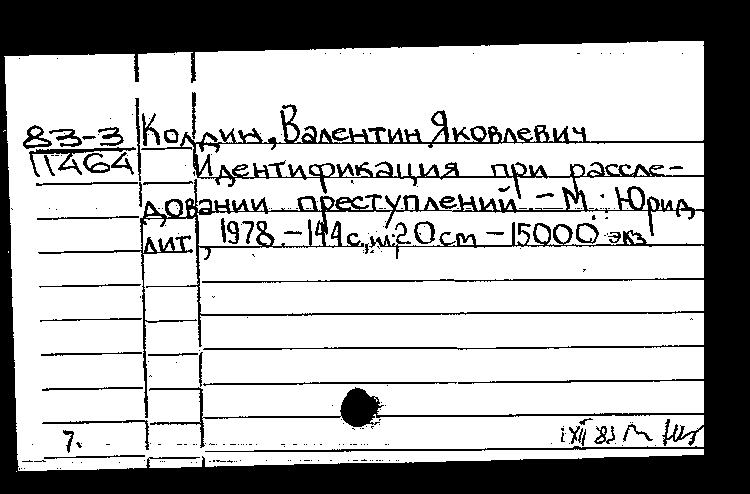 83-3 Колдин, Валентин Яковлевич
11464 Идентификация при рассле-
довании преступлений – М.: Юрид.
лит., 1978. – 144 с., ил; 20 cm – 15000 экз
7. 1 XII 83